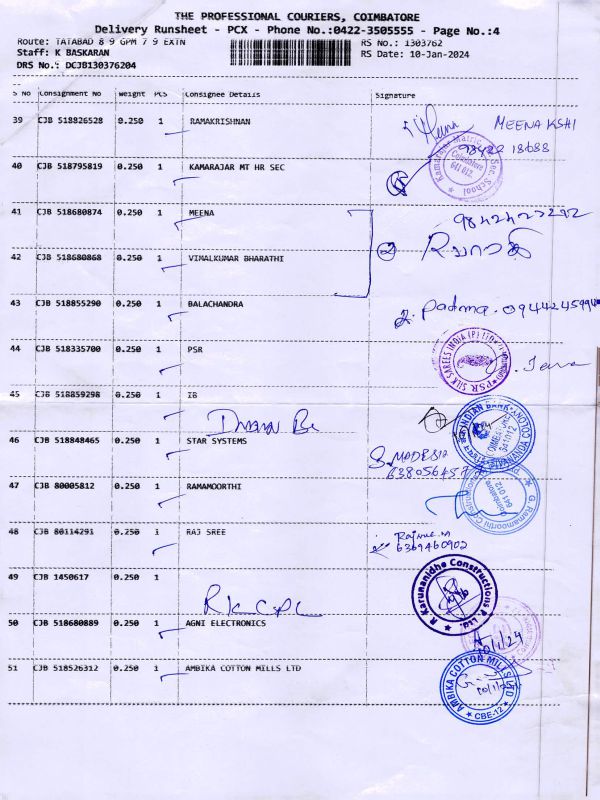 THE PROFESSIONAL COURIERS, COIMBATORE
Delivery Runsheet - PCX - Phone No.:0422-3505555 - Page No.:4
Route: TATABAD 8 9 GPM 7 9 EXTN RS No.: 1303762
Staff: K BASKARAN RS Date: 10-Jan-2024
DRS No.: DCJB130376204
S No Consignment No Weight PCS Consignee Details Signature
39 CJB 518826528 0.250 1 RAMAKRISHNAN MEENAKSHI
40 CJB 518795819 0.250 1 KAMARAJAR MT HR SEC
Coimbatore 641 012.
41 CJB 518680874 0.250 1 MEENA
42 CJB 518680868 0.250 1 VIMALKUMAR BHARATHI
43 CJB 518855290 0.250 1 BALACHANDRA 2. Padma.
44 CJB 518335700 0.250 1 PSR
PSR SILK SAREES INDIA (P) LTD
45 CJB 518859298 0.250 1 IB
INDIAN BANK
46 CJB 518848465 0.250 1 STAR SYSTEMS
47 CJB 80005812 0.250 1 RAMAMOORTHI
G. Ramamoorthi Constructions
Coimbatore 641 012
48 CJB 80114291 0.250 1 RAJ SREE
6369460902
49 CJB 1450617 0.250 1
R Karunanidhe Constructions P. Ltd.
50 CJB 518680889 0.250 1 AGNI ELECTRONICS
10/1/24
51 CJB 518526312 0.250 1 AMBIKA COTTON MILLS LTD
AMBIKA COTTON MILLS LTD
CBE-12